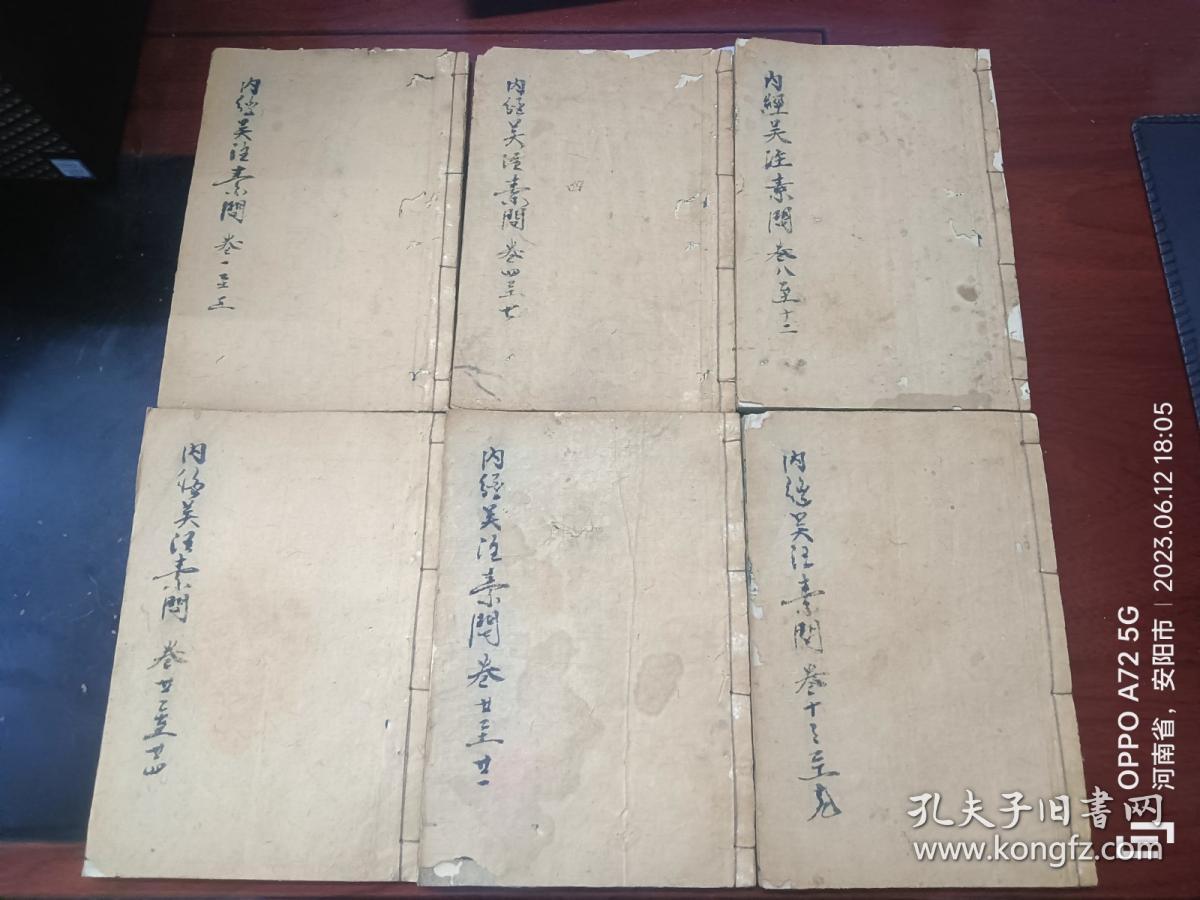 内經吳注素問 卷一至三
内經吳注素問 卷四至七
内經吳注素問 卷八至十二
内經吳注素問 卷廿二至廿四
内經吳注素問 卷廿至廿一
内經吳注素問 卷十三至九
OPPO A72 5G
河南省，安阳市 | 2023.06.12 18:05
孔夫子旧书网
www.kongfz.com